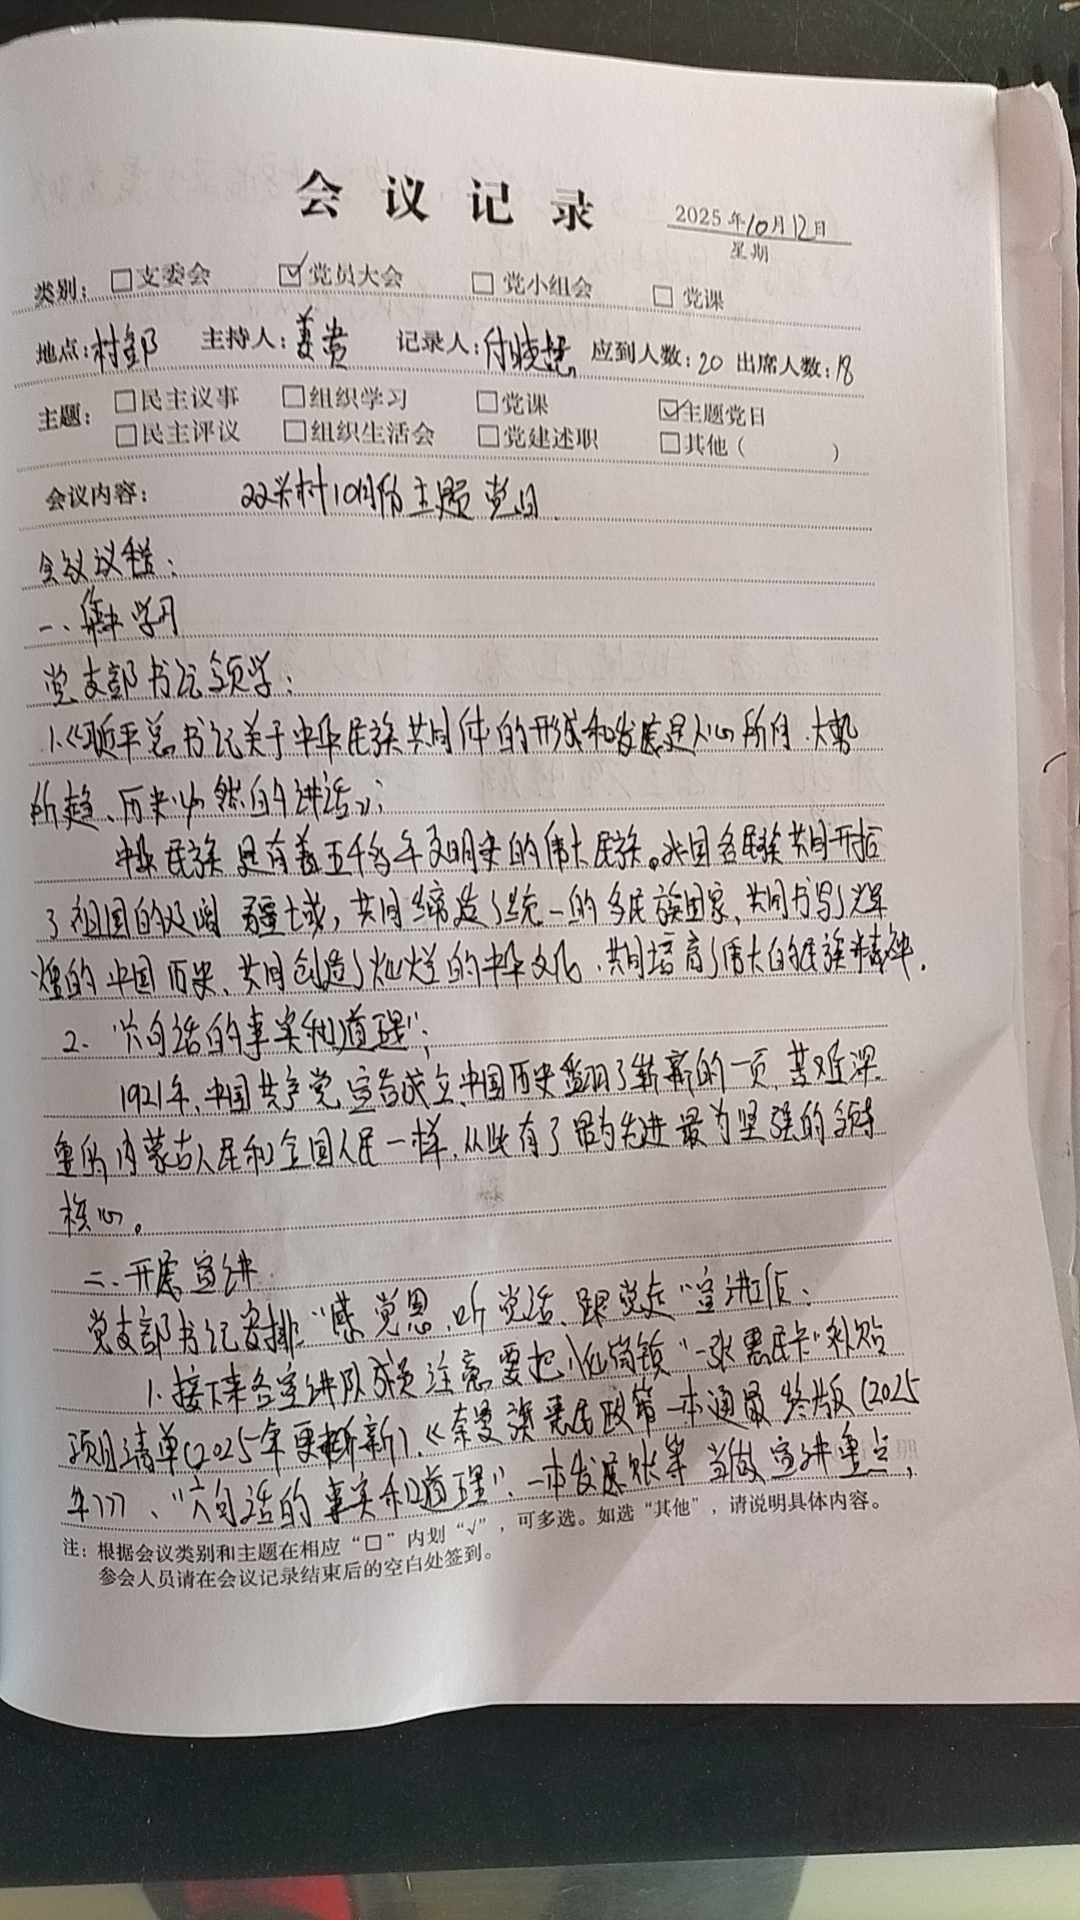 会议记录
2025年10月12日
星期
类别: □支委会 ☑党员大会 □党小组会 □党课
地点:村部 主持人:姜贵 记录人:付晓慧 应到人数:20 出席人数:18
主题: □民主议事 □组织学习 □党课 ☑主题党日
□民主评议 □组织生活会 □党建述职 □其他( )
会议内容: 村10月份主题党日
会议议程:
一、集中学习
党支部书记领学:
1.《习近平总书记关于中华民族共同体的形成和发展是人心所向、大势
所趋、历史必然的讲话》;
中华民族是有着五千多年文明史的伟大民族。我国各民族共同开拓
了祖国的辽阔疆域,共同缔造了统一的多民族国家、共同书写了辉
煌的中国历史、共同创造了灿烂的中华文化、共同培育了伟大的民族精神.
2、“六句话的事实和道理”;
1921年、中国共产党宣告成立、中国历史翻了崭新的一页,苦难深
重的内蒙古人民和全国人民一样,从此有了最为先进最为坚强的领导
核心。
二、开展宣讲
党支部书记安排“感党恩、听党话、跟党走”宣讲工作、
1.接下来各宣讲队成员注意要把八仙筒镇“一张惠民卡”补贴
项目清单(2025年更新)、《奈曼旗惠民政策一本通最终版(2025
年)》、“六句话的事实和道理”、一本发展账等当做宣讲重点,
注:根据会议类别和主题在相应“□”内划“√”,可多选。如选“其他”,请说明具体内容。
参会人员请在会议记录结束后的空白处签到。